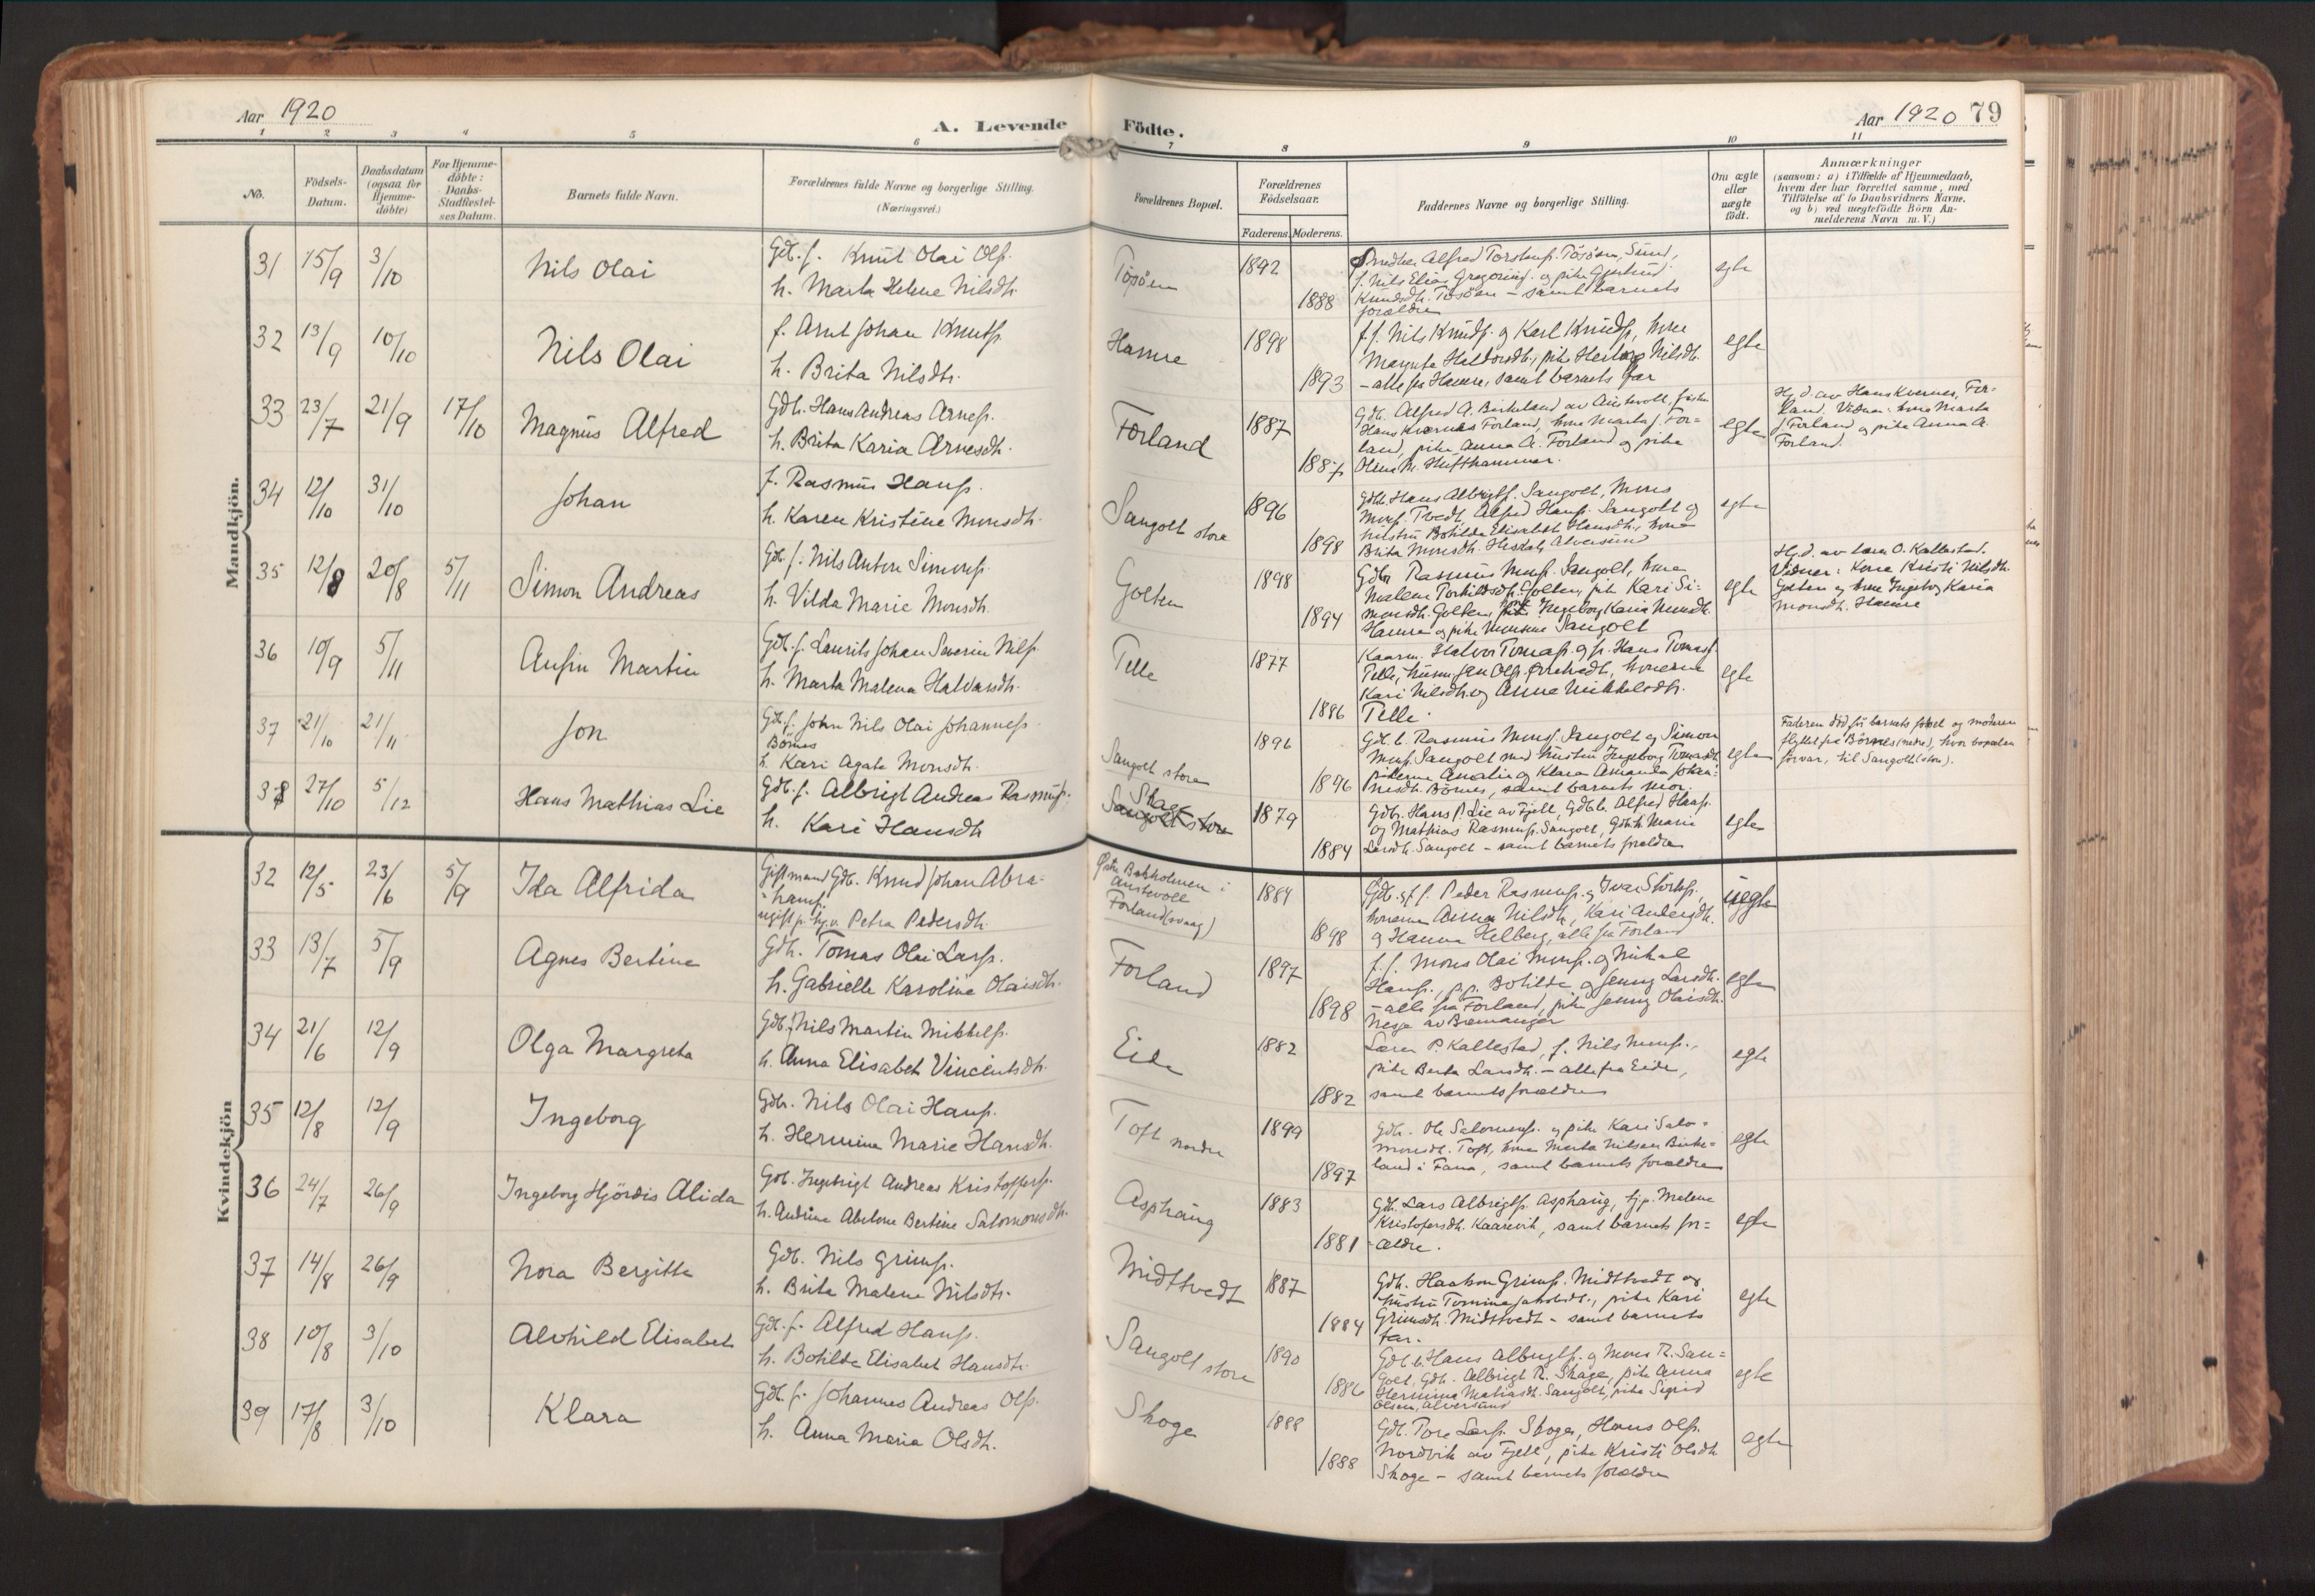 Aar 1920
A. Levende
Födte.
Aar 1920 79
1 2 3 4 5 6 7 8 9 10 11
No.
Födsels-
Datum.
Daabsdatum
(ogsaa for
Hjemme-
döbte)
For Hjemme-
döbte:
Daabs-
Stadfæstel-
ses Datum.
Barnets fulde Navn.
Forældrenes fulde Navne og borgerlige Stilling.
(Næringsvei.)
Forældrenes Bopæl.
Forældrenes
Födselsaar.
Faderens. Moderens.
Faddernes Navne og borgerlige Stilling.
Om ægte
eller
uægte
födt.
Anmærkninger
(saasom: a) i Tilfælde af Hjemmedaab,
hvem der har forrettet samme, med
Tilföielse af to Daabsvidners Navne.
og b) ved uægtefödte Börn An-
melderens Navn m. V.)
Mandkjön.
31 15/9 3/10 Nils Olai
Gdb. f. Knut Olai Ols.
h. Marta Helene Nilsdtr.
Tösöen 1892 1888
Alfred Torstens. Tösöen, Sund,
f. Nils Elias og pike
Knudsdtr. Tösöen - samt barnets
forældre
egte
32 13/9 10/10 Nils Olai
f. Arnt Johan Knuts.
h. Brita Nilsdtr.
Hamre 1898 1893
f. f. Nils Knuds. og Karl Knuds., kone
Margreta Haldorsdtr., pike Nilsdtr.
- alle fra Hamre, samt barnets far
egte
33 23/7 21/9 17/10 Magnus Alfred
Gdb. Hans Andreas Arnes.
h. Brita Karia Arnesdtr.
Forland 1887 1887
Gdb. Alfred A. Birkeland av Austevoll, fisker
Hans Kvernes Forland, kone Marta J. For-
land, pike Anna A. Forland og pike
Olina M. Hufthammer.
egte
Hj. d. av Hans Kvernes, For-
land. Vidner: kone Marta
J. Forland og pike Anna A.
Forland.
34 12/10 31/10 Johan
f. Rasmus Hans.
h. Karen Kristine Monsdtr.
Sangolt store 1896 1898
Gdb. Hans Albrigts. Sangolt, Mons
Mons. Tvedt, Alfred Hans. Sangolt og
hustru Botilda Elisabet Hansdtr., kone
Brita Monsdtr. Alversund
egte
35 12/8 20/8 5/11 Simon Andreas
Gdb. f. Nils Anton Simons.
h. Vilda Marie Monsdtr.
Golten 1898 1894
Gdbr. Rasmus Mons. Sangolt, kone
Malene Torkildsdtr. Golten, pike Kari Si-
monsdtr. Golten, kone Ingeborg Karia Monsdtr.
Hamre og pike Monsine Sangolt
egte
Hj. d. av lærer O. Kallestad.
Vidner: Kone Kristi Nilsdtr.
Golten og kone Ingeborg Karia
Monsdtr. Hamre
36 10/9 5/11 Anfin Martin
Gdb. f. Laurits Johan Severin Nils.
h. Marta Malena Halvarsdtr.
Telle 1877 1886
Kaarm. Halvor Tomas. og gs. Hans Tomas.
Telle, Jan Ols. konerne
Kari Nilsdtr. og Anna Mikkelsdtr.
Telle.
egte
37 21/10 21/11 Jon
Gdb. f. John Nils Olai Johannes.
Börnes
h. Kari Agate Monsdtr.
Sangolt store 1896 1896
Gdb. b. Rasmus Mons. Sangolt og Simon
Mons. Sangolt med hustru Ingeborg Tomasdtr.
pikerne Amalia og Klara Amanda Johan-
nesdtr. Börnes, samt barnets mor.
egte
Faderen död før barnets fødsel og moderen
flyttet fra Börnes (nedre), hvor bopælen
før var, til Sangolt (store).
38 27/10 5/12 Hans Mathias Lie
Gdb. f. Albrigt Andreas Rasmus.
h. Kari Hansdtr
Skage
Sangolt store 1879 1884
Gdb. Hans P. Lie av Fjell, Gdb. b. Alfred Hans.
og Mathias Rasmus. Sangolt, Gdb. h. Marie
Larsdtr. Sangolt - samt barnets forældre
egte
Kvindekjön
32 12/5 23/6 5/9 Ida Alfrida
Gift mand Gdb. Knud Johan Abra-
hams.
ugift p. Petra Pedersdtr.
Bakholmen i
Austevoll
Forland (vaag) 1884 1898
Gdb. og f. f. Peder Rasmus. og Ivar
konerne Anna Nilsdtr., Kari Andersdtr.
og Hanna Helberg, alle fra Forland
uegte
33 13/7 5/9 Agnes Bertine
Gdb. Tomas Olai Lars.
h. Gabrielle Karoline Olaisdtr.
Forland 1897 1898
f. f. Mons Olai Mons. og Mikal
Hans., p. p. Botilde og Jenny Larsdtr.
- alle fra Forland, pike Jenny Olaisdtr.
Nesje av Bremanger
egte
34 21/6 12/9 Olga Margreta
Gdb. f. Nils Martin Mikkels.
h. Anna Elisabet Vincentsdtr.
Eide 1882 1882
Lærer P. Kallestad, f. Nils Mons.,
pike Berta Larsdtr. - alle fra Eide,
samt barnets forældre
egte
35 12/8 12/9 Ingeborg
Gdbr. Nils Olai Hans.
h. Hermine Marie Hansdtr.
Toft nordre 1899 1897
Gdb. Ole Salomons. og pike Kari Salo-
monsdtr. Toft, kone Marta Nilsen Birke-
land i Fana, samt barnets forældre
egte
36 24/7 26/9 Ingeborg Hjördis Alida
Gdb. Ingebrigt Andreas Kristoffers.
h. Andrine Abelone Bertine Salomonsdtr.
Asphaug 1883 1881
Gdb. Lars Albrigts. Asphaug, tj. p. Malene
Kristofersdtr. Kaarevik, samt barnets for-
ældre.
egte
37 14/8 26/9 Nora Bergitte
Gdb. Nils Grims.
h. Brita Malene Nilsdtr.
Midttvedt 1887 1884
Gdb. Haakon Grims. Midttvedt og
hustru Tomine Jakobsdtr., pike Kari
Grimsdtr. Midttvedt - samt barnets
far.
egte
38 10/8 3/10 Alvhild Elisabet
Gdb. f. Alfred Hans.
h. Botilde Elisabet Hansdtr.
Sangolt store 1890 1886
Gdb. b. Hans Albrigts. og Mons R. San-
golt, Gdb. Albrigt R. Skage, pike Anna
Hermina Matiasdtr. Sangolt, pike Sigrid
Olsen, Alversund
egte
39 17/8 3/10 Klara
Gdb. f. Johannes Andreas Ols.
h. Anna Maria Olsdtr.
Skoge 1888 1888
Gdb. Tore Lars. Skoge, Hans Ols.
Nordvik av Fjell, pike Kristi Olsdtr.
Skoge - samt barnets forældre
egte